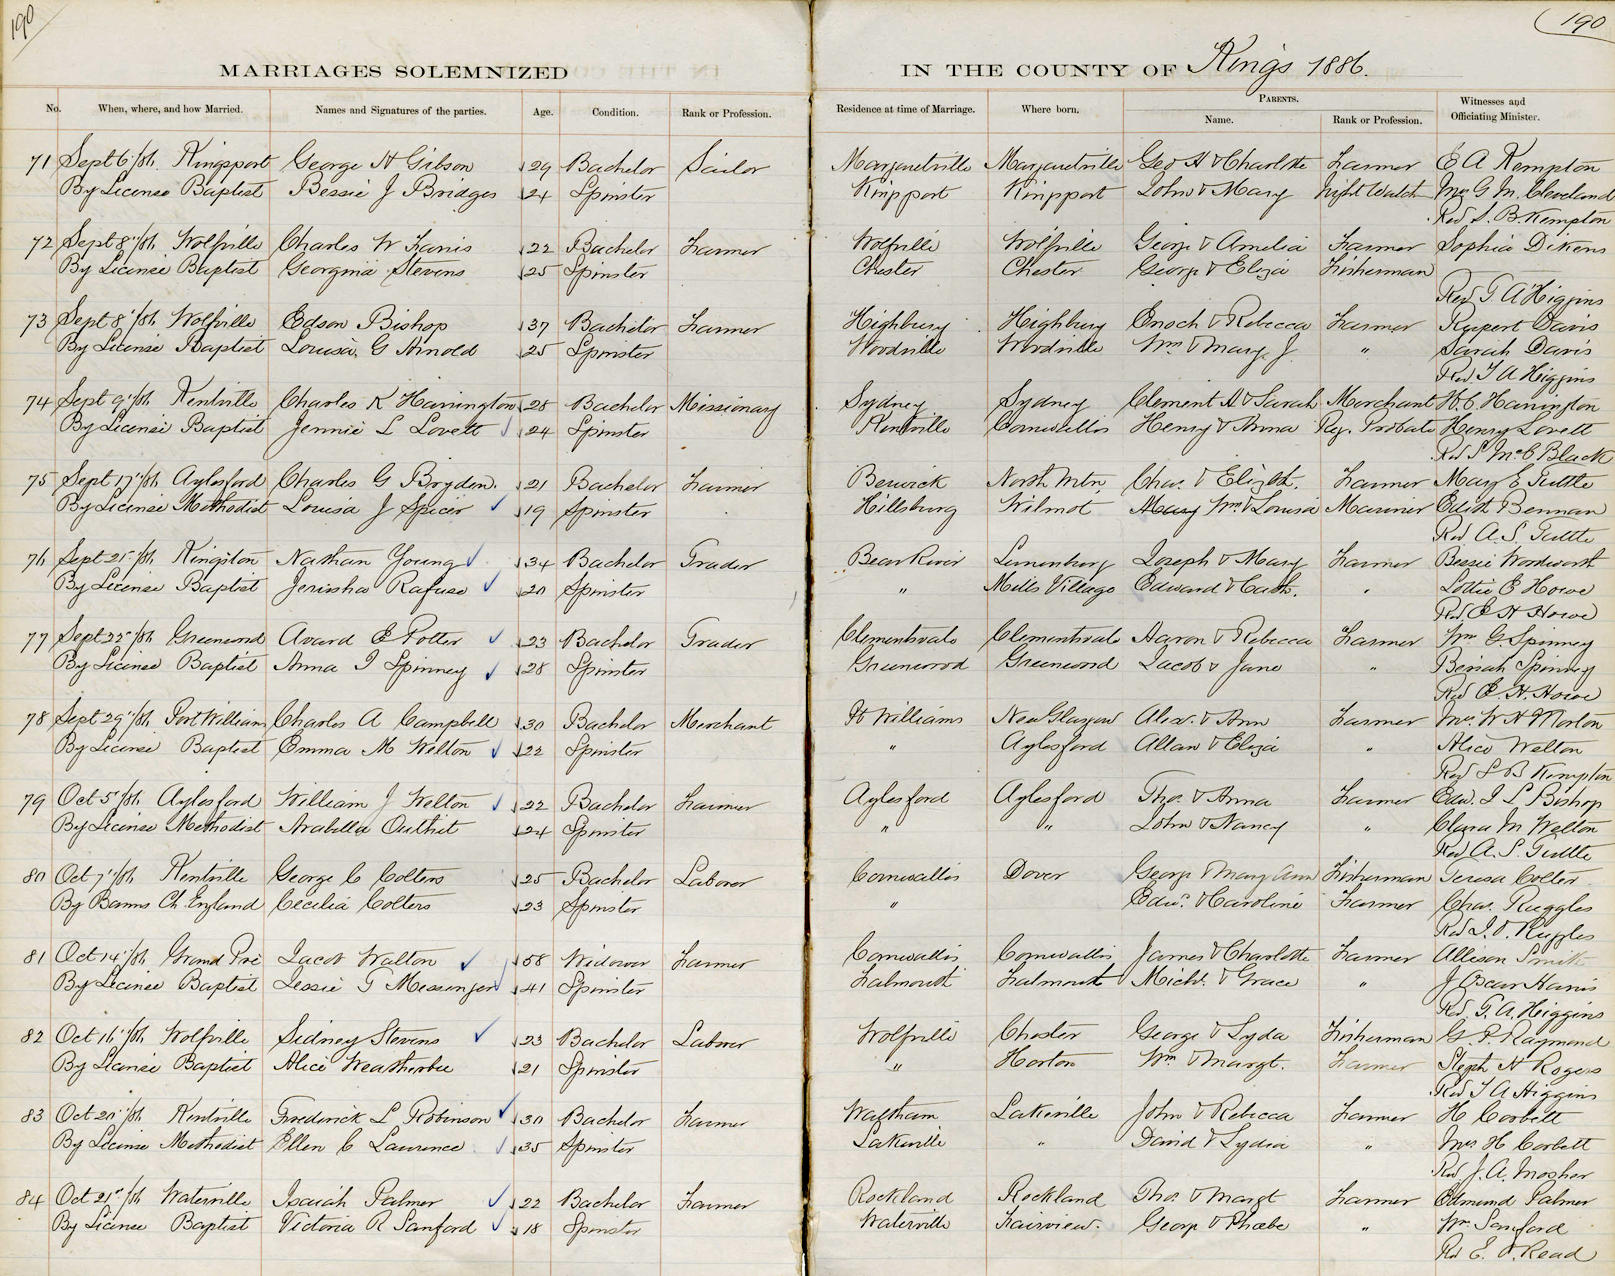 190
190
MARRIAGES SOLEMNIZED IN THE COUNTY OF Kings 1886.
No. When, where, and how Married. Names and Signatures of the parties. Age. Condition. Rank or Profession. Residence at time of Marriage. Where born. PARENTS. Name. Rank or Profession. Witnesses and Officiating Minister.
71 Sept 6"/86 Kingsport George H Gibson 29 Bachelor Sailor Margaretville Margaretville Geo H & Charlotte Farmer E A Kempton
By License Baptist Bessie J Bridges 24 Spinster Kingsport Kingsport John & Mary Night Watch Mrs G M Cleveland
Rev S. B. Kempton
72 Sept 8"/86 Wolfville Charles W Farris 22 Bachelor Farmer Wolfville Wolfville George & Amelia Farmer Sophia Dikens
By License Baptist Georgina Stevens 25 Spinster Chester Chester George & Eliza Fisherman
Rev T A Higgins
73 Sept 8"/86 Wolfville Edson Bishop 37 Bachelor Farmer Highbury Highbury Enoch & Rebecca Farmer Rupert Davis
By License Baptist Louisa G Arnold 25 Spinster Woodville Woodville Wm & Mary J " Sarah Davis
Rev T A Higgins
74 Sept 9"/86 Kentville Charles K Harrington 28 Bachelor Missionary Sydney Sydney Clement H & Sarah Merchant H. C. Harrington
By License Baptist Jennie L Lovett 24 Spinster Kentville Cornwallis Henry & Anna Reg. Probate Henry Lovett
Rev S McC Black
75 Sept 17"/86 Aylesford Charles G Brydon. 21 Bachelor Farmer Berwick North Mtn Chas. & Elizth. Farmer Mary E Tuttle
By License Methodist Louisa J Spicer 19 Spinster Hillsburg Wilmot Mary Wm & Louisa Mariner Edith Bennan
Rev A. S. Tuttle
76 Sept 21"/86 Kingston Nathan Young 34 Bachelor Trader Bear River Lunenburg Joseph & Mary Farmer Bessie Wordworth
By License Baptist Jerusha Rafuse 20 Spinster " Mills Village Edward & Cath. " Lottie E Howe
Rev E H Howe
77 Sept 22"/86 Greenwood Avard E Potter 23 Bachelor Trader Clementsvale Clementsvale Aaron & Rebecca Farmer Wm G. Spinney
By License Baptist Anna I Spinney 28 Spinster Greenwood Greenwood Jacob & Jane " Beriah Spinney
Rev E. H. Howe
78 Sept 29"/86 Port Williams Charles A Campbell 30 Bachelor Merchant Pt Williams New Glasgow Alex. & Ann Farmer Mrs W H Morton
By License Baptist Emma M Welton 22 Spinster " Aylesford Allan & Eliza " Alice Welton
Rev S B Kempton
79 Oct 5"/86 Aylesford William J Welton 22 Bachelor Farmer Aylesford Aylesford Thos. & Anna Farmer Edw. I S Bishop
By License Methodist Arabella Outhit 24 Spinster " " John & Nancy " Clara M Welton
Rev A. S. Tuttle
80 Oct 7"/86 Kentville George C Colters 25 Bachelor Laborer Cornwallis Dover George & Mary Ann Fisherman Teresa Colter
By Banns Ch. England Cecilia Colters 23 Spinster " Edw. & Caroline Farmer Chas. Ruggles
Rev J. O. Ruggles
81 Oct 14"/86 Grand Pré Jacob Walton 58 Widower Farmer Cornwallis Cornwallis James & Charlotte Farmer Allison Smith
By License Baptist Jessie T Messinger 41 Spinster Falmouth Falmouth Michl. & Grace " J Oscar Harris
Rev. T. A. Higgins
82 Oct 16"/86 Wolfville Sidney Stevens 23 Bachelor Laborer Wolfville Chester George & Lyda Fisherman G. P. Raymond
By License Baptist Alice Weatherbee 21 Spinster " Horton Wm & Margt. Farmer Steph H Rogers
Rev T A Higgins
83 Oct 20"/86 Kentville Frederick L Robinson 30 Bachelor Farmer Waltham Lakeville John & Rebecca Farmer H Corbett
By License Methodist Ellen C Lawrence 35 Spinster Lakeville " David & Lydia " Mrs H Corbett
Rev J. A. Mosher
84 Oct 21st/86 Waterville Isaiah Palmer 22 Bachelor Farmer Rockland Rockland Thos. & Margt Farmer Edmund Palmer
By License Baptist Victoria R Sanford 18 Spinster Waterville Fairview. George & Phœbe " Wm Sanford
Rev E. O. Read